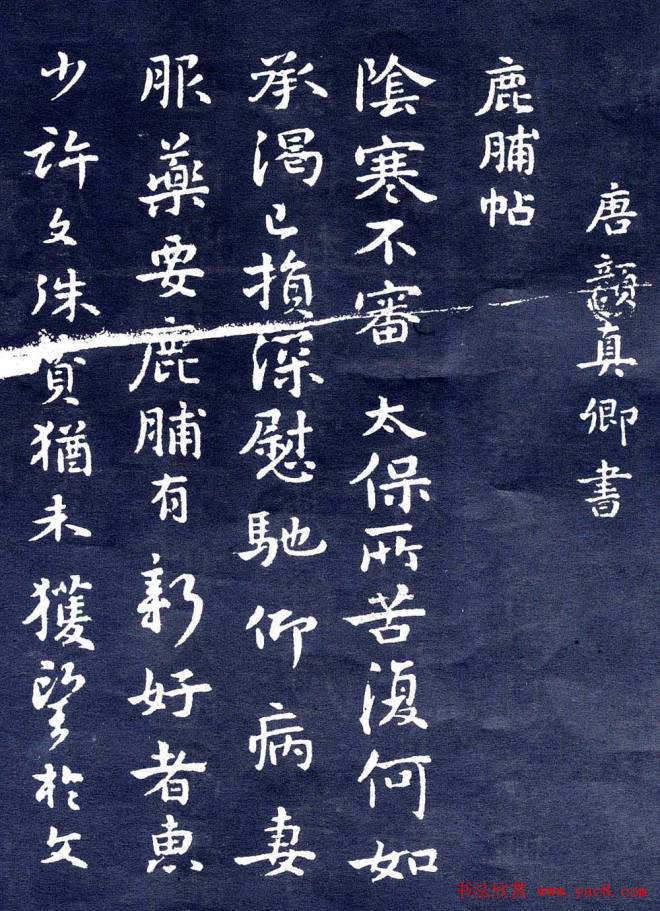 唐顏真卿書
鹿脯帖
陰寒不審 太保所苦復何如
承渴已損深慰馳仰病妻
服藥要鹿脯有新好者惠
少許文殊猶未獲望於文
书法欣赏 www.yac8.com